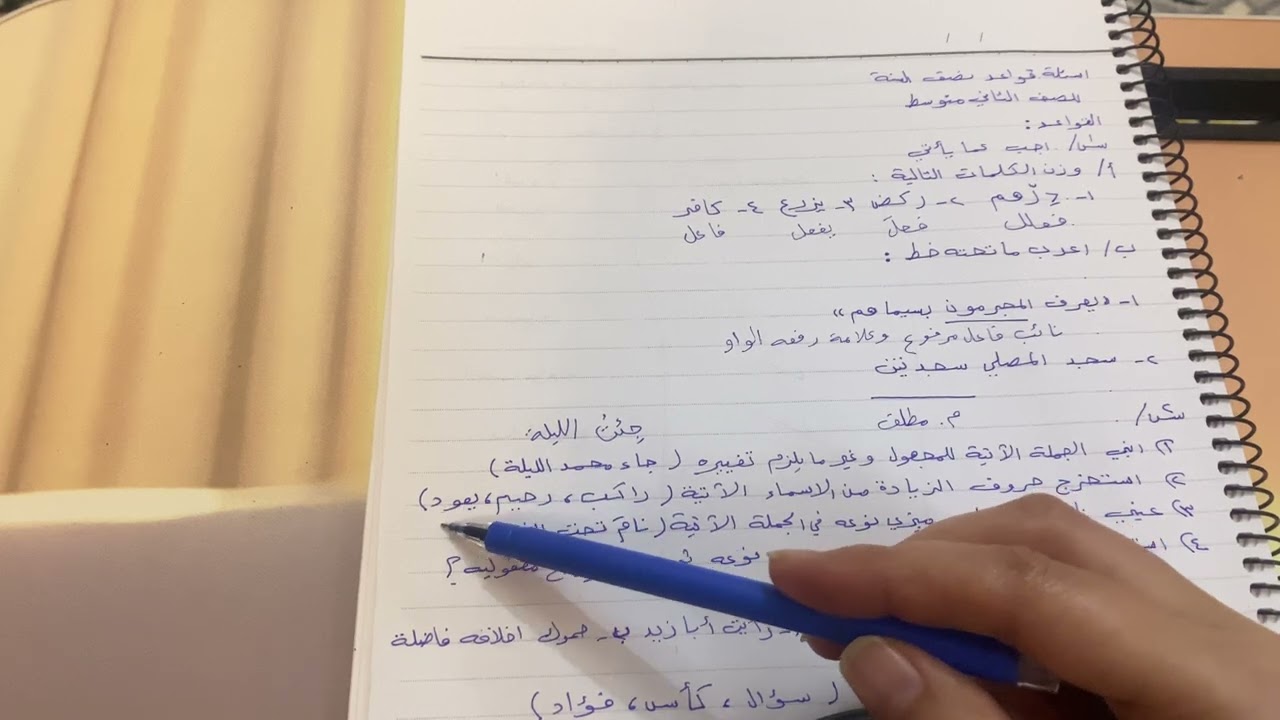 اسئلة قواعد نصف السنة
للصف الثاني متوسط
القواعد:
س١/ اجب عما يأتي
أ/ وزن الكلمات التالية :
١- دِرْهم ٢- ركض ٣- يزرع ٤- كافر
فعلل فعلَ يفعل فاعل
ب/ اعرب ما تحته خط :
١- «يعرف المجرمون بسيماهم»
نائب فاعل مرفوع وعلامة رفعه الواو
٢- سجد المصلي سجدتين
س٢/ م. مطلق جِئتُ الليلة
١) ابني الجملة الآتية للمجهول وغير ما يلزم تغييره (جاء محمد الليلة)
٢) استخرج حروف الزيادة من الاسماء الآتية (راكب، رحيم، يعود)
٣) عيني ميزي نوعه في الجملة الآتية (نام تحت
٤) نوعه مفعوليه؟
رأيت أبا زيد ب- حموك اخلاقه فاضلة
(سؤال، كأس، فؤاد)